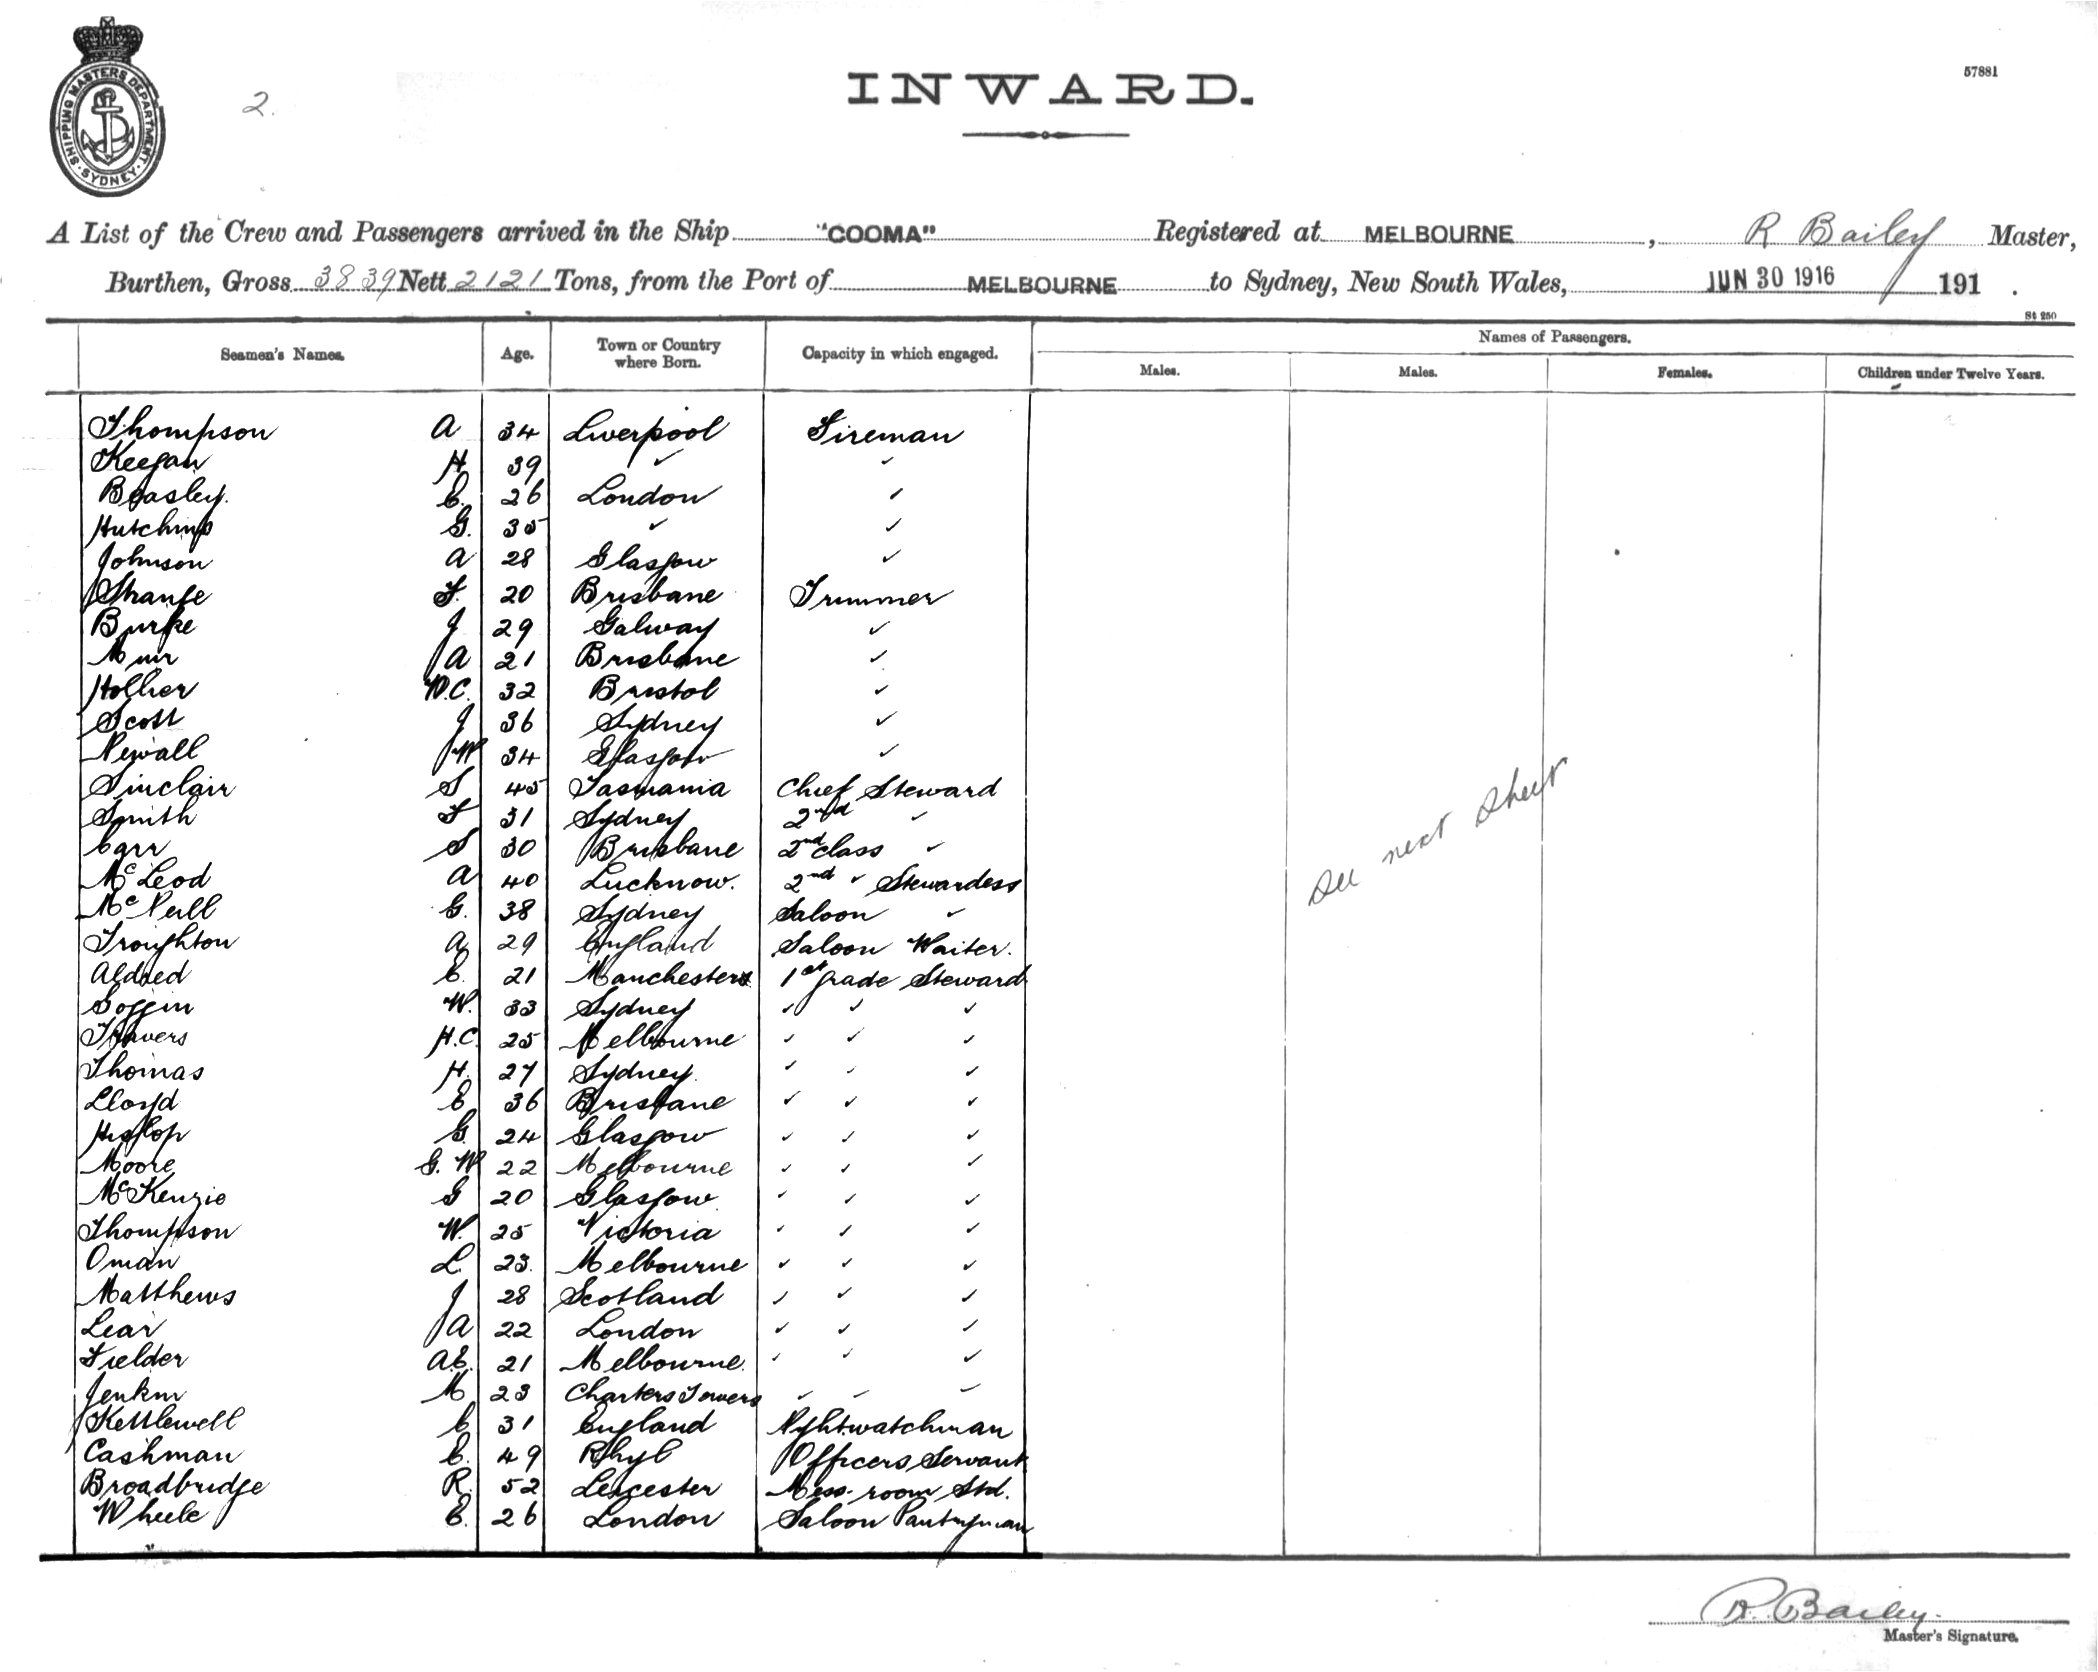 SHIPPING MASTERS DEPARTMENT · SYDNEY ·
2.
INWARD.
57881
A List of the Crew and Passengers arrived in the Ship "COOMA" Registered at MELBOURNE, R Bailey Master,
Burthen, Gross 3839 Nett 2121 Tons, from the Port of MELBOURNE to Sydney, New South Wales, JUN 30 1916 191 .
St 250
Seamen's Names. Age. Town or Country where Born. Capacity in which engaged. Names of Passengers.
Males. Males. Females. Children under Twelve Years.
Thompson A 34 Liverpool Fireman
Keegan H 39 ✓ ✓
Beasley. C. 26 London ✓
Hutchins G. 35 ✓ ✓
Johnson A 28 Glasgow ✓
Strange F. 20 Brisbane Trimmer
Burke J 29 Galway ✓
Muir A 21 Brisbane ✓
Hollier W.C. 32 Bristol ✓
Scott J 36 Sydney ✓
Newall W 34 Glasgow ✓
Sinclair S 45 Tasmania Chief Steward
Smith F 31 Sydney 2nd ✓
Carr S 30 Brisbane 2nd class ✓
McLeod A 40 Lucknow. 2nd ✓ Stewardess
McNeill G. 38 Sydney Saloon ✓
Troughton A 29 England Saloon Waiter.
Aldred C. 21 Manchester 1st grade Steward
Goggin W. 33 Sydney ✓ ✓ ✓
Travers H.C. 25 Melbourne ✓ ✓ ✓
Thomas H. 27 Sydney. ✓ ✓ ✓
Lloyd E 36 Brisbane ✓ ✓ ✓
Hislop G. 24 Glasgow ✓ ✓ ✓
Moore G. W 22 Melbourne ✓ ✓ ✓
McKenzie G 20 Glasgow ✓ ✓ ✓
Thompson W. 25 Victoria ✓ ✓ ✓
Oman L. 23. Melbourne ✓ ✓ ✓
Matthews J 28 Scotland ✓ ✓ ✓
Lear A 22 London ✓ ✓ ✓
Fielder A.E. 21 Melbourne. ✓ ✓ ✓
Jenkin M 23 Charters Towers ✓ ✓ ✓
Kettlewell C 31 England Nightwatchman
Cashman C. 49 Rhyl Officers Servant
Broadbridge R. 52 Leicester Mess-room Std.
Wheele E. 26 London Saloon Pantryman
See next Sheet
R. Bailey.
Master's Signature.